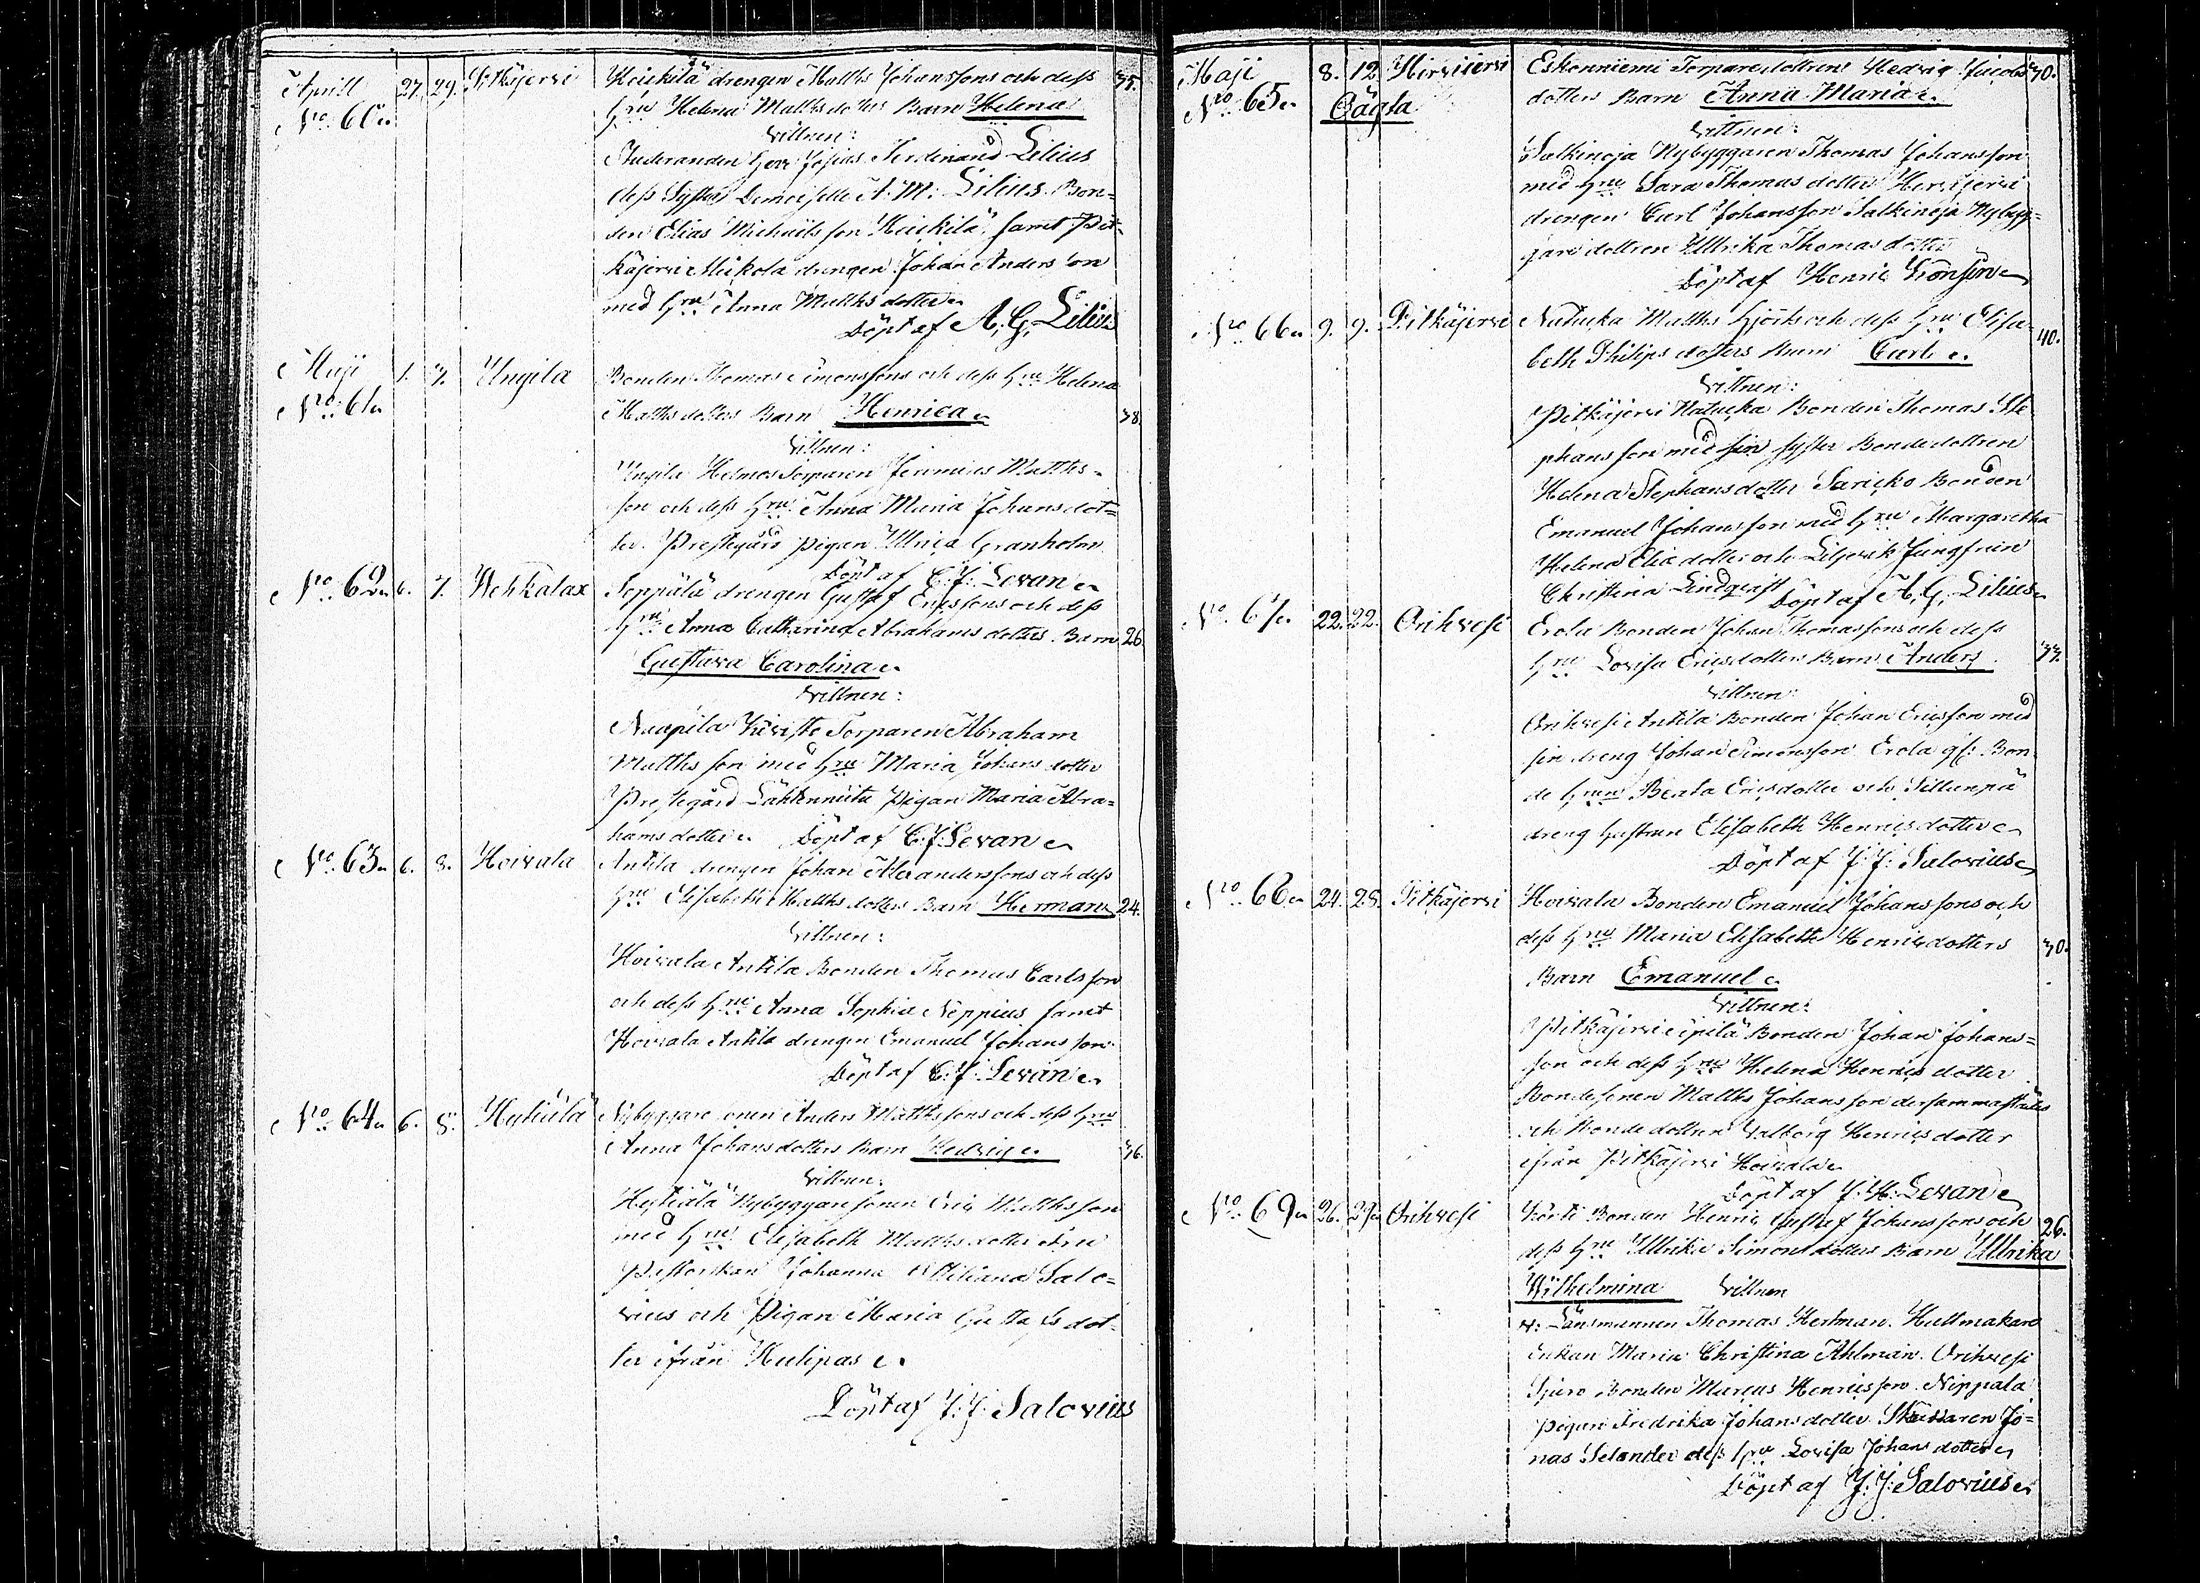 Aprill 27. 29. Pitkäjervi Heickilä drengen Matths Johanssons och dess 35.
No 60. Hru Helena Matths dotters Barn Helena
Vittnen:
Studeranden Herr Josias Ferdinand Lilius
dess Syster Demoiselle A. M. Lilius. Bon=
den Elias Michaels son Heickilä, samt Pit=
käjervi Mickola drengen Johan Anders son
med Hru Anna Matths dotter
Döpt af A. G. Lilius
Maji 1. 7. Ungila Bonden Thomas Simonssons och dess Hru Helena
No 61. Matths dotters Barn Henrica 38.
Vittnen:
Ungila Torparen Matths=
son och dess Hru Anna Maria Johans dot=
ter. Prestegård Pigan Ulrica Granholm
Döpt af C. J. Levan
No 62. 6. 7. Wehkalax Seppälä drengen Gustaf Ericssons och dess
Hru Anna Catharina Abrahams dotters Barn 26.
Gustava Carolina
Vittnen:
Naapila Torparen Abraham
Matths son med Hru Maria Johans dotter
Prestegård Pigan Maria Abra=
hams dotter Döpt af C. J. Levan
No 63. 6. 8. Hoivala Antila drengen Johan Alexanderssons och dess
Hru Elisabeth Matths dotters Barn Herman 24.
Vittnen:
Hoivala Antila Bonden Thomas Carlsson
och dess Hru Anna Sophia Neppius samt
Hoivala Antila drengen Emanuel Johans son
Döpt af C. J. Levan
No 64. 6. 8. Hytiälä Nybyggare sonen Anders Matthssons och dess Hru
Anna Johans dotters Barn Hedvig 36.
Vittnen:
Hytiälä Nybyggare sonen Eric Matths son
med Hru Elisabeth Matths dotter
Pastorskan Johanna Salo=
vius och Pigan Maria Gustafs dot=
ter ifrån Hulipas
Döpt af J. J. Salovius
Maji 8. 12. Hirvijervi Eskonniemi Torpare dottren Hedvig Jacobs 30.
No 65. Oägta dotters Barn Anna Maria
Vittnen:
Salkinoja Nybyggaren Thomas Johansson
med Hru Sara Thomas dotter Hirvijervi
drengen Carl Johansson Salkinoja Nybyg=
gare dottren Ullrika Thomas dotter
Döpt af Henric Grönfors
No 66. 9. 9. Pitkäjervi Natucka Matths Hjorts och dess Hru Elisa= 40.
beth Philips dotters Barn Carl
Vittnen:
Pitkäjervi Natucka Bonden Thomas Ste
phans son med sin syster Bondedottren
Helena Stephans dotter Saricko Bonden
Emanuel Johansson med Hru Margaretha
Helena Elie dotter och Jungfrun
Christina Lindqvist Döpt af A. G. Lilius
No 67. 22. 22. Orihvesi Erola Bonden Johan Thomassons och dess
Hru Lovisa Ericsdotters Barn Anders 33.
Vittnen:
Orihvesi Antila Bonden Johan Ericsson med
sin dreng Johan Simonsson Erola Bon=
de Hrun Beata Ericsdotter och Sillunpä
dreng hustrun Elisabeth Henrics dotter
Döpt af J. J. Salovius
No 68. 24. 28. Pitkäjervi Hoivala Bonden Emanuel Johans sons och
dess Hru Maria Elisabeth Henricsdotters 30.
Barn Emanuel
Vittnen:
Pitkäjervi Eipilä Bonden Johan Johans=
son och dess Hru Helena Henrics dotter
Bondesonen Matths Johans son dersammastädes
och Bonde dottren Valborg Henrics dotter
ifrån Pitkäjervi Hoivala
Döpt af J. H. Levan
No 69. 26. 29. Orihvesi Bonden Henric Gustaf Johans sons och 26.
dess Hru Ullrika Simons dotters Barn Ullrika
Wilhelmina Vittnen
v: Länsmannen Thomas Hertman. Hattmakare
Enkan Maria Christina Ahlman. Orihvesi
Bonden Marcus Henricsson. Nippala
Pigan Fredrika Johans dotter. Jo=
nas Selander dess Hru Lovisa Johans dotter
Döpt af J. J. Salovius